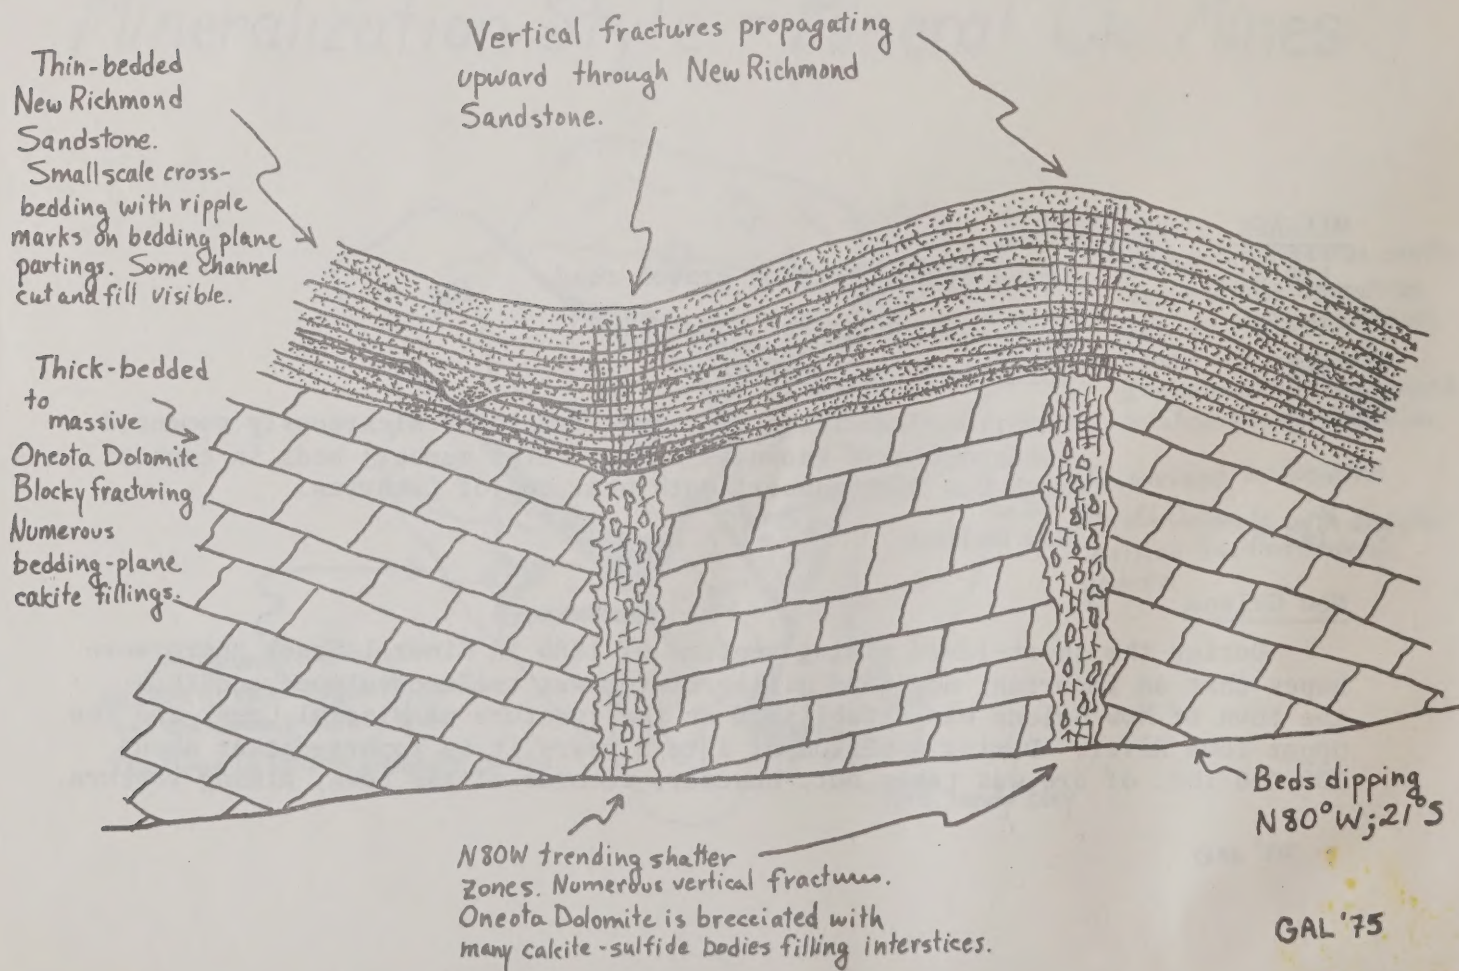 Thin-bedded
New Richmond
Sandstone.
Small scale cross-
bedding with ripple
marks on bedding plane
partings. Some channel
cut and fill visible.
Vertical fractures propagating
upward through New Richmond
Sandstone.
Thick-bedded
to
massive
Oneota Dolomite
Blocky fracturing
Numerous
bedding-plane
calcite fillings.
N80W trending shatter
zones. Numerous vertical fractures.
Oneota Dolomite is brecciated with
many calcite-sulfide bodies filling interstices.
Beds dipping
N80°W; 21°S
GAL '75